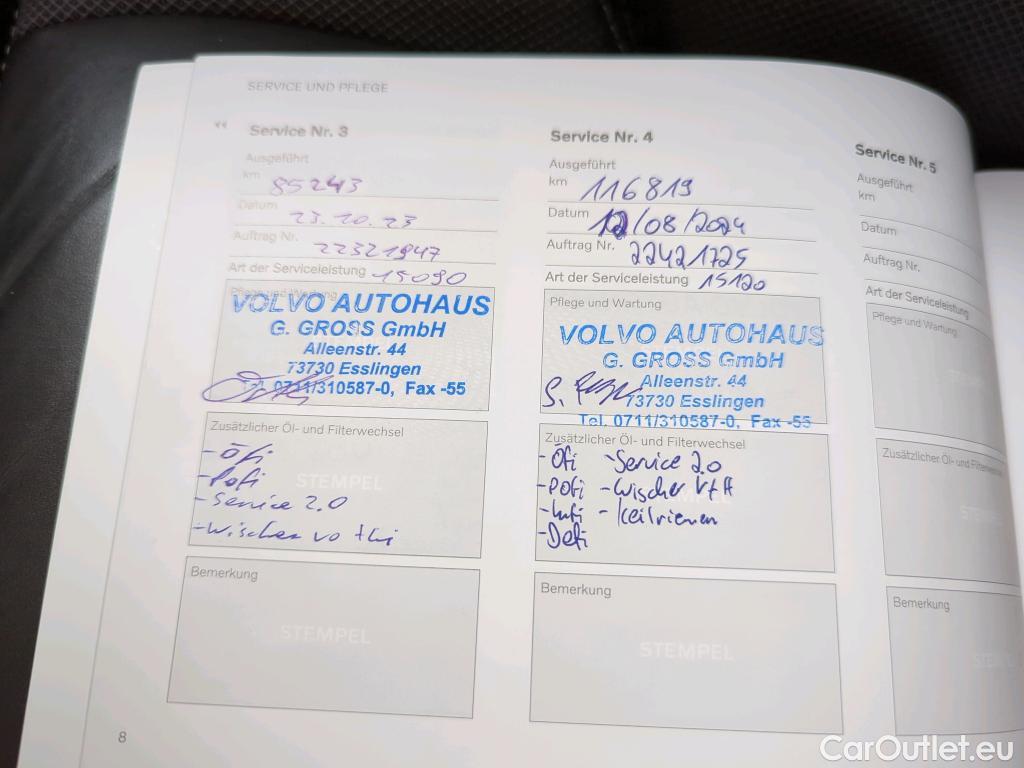 SERVICE UND PFLEGE
Service Nr. 3
Ausgeführt
km 85243
Datum 23.10.23
Auftrag Nr. 22321947
Art der Serviceleistung 15090
Pflege und Wartung
VOLVO AUTOHAUS
G. GROSS GmbH
Alleenstr. 44
73730 Esslingen
Tel. 0711/310587-0, Fax -55
Zusätzlicher Öl- und Filterwechsel
- Öfi
- Pofi
STEMPEL
- Service 2.0
- Wischer vo + hi
Bemerkung
STEMPEL
8
Service Nr. 4
Ausgeführt
km 116819
Datum 12/08/2024
Auftrag Nr. 22421725
Art der Serviceleistung 15120
Pflege und Wartung
VOLVO AUTOHAUS
G. GROSS GmbH
Alleenstr. 44
73730 Esslingen
Tel. 0711/310587-0, Fax -55
Zusätzlicher Öl- und Filterwechsel
- Öfi - Service 2.0
- Pofi - Wischer V+H
- Lufi - Keilriemen
- Defi
Bemerkung
STEMPEL
Service Nr. 5
Ausgeführt
km
Datum
Auftrag Nr.
Art der Serviceleistung
Pflege und Wartung
Zusätzlicher Öl- und Filterwechsel
Bemerkung
CarOutlet.eu